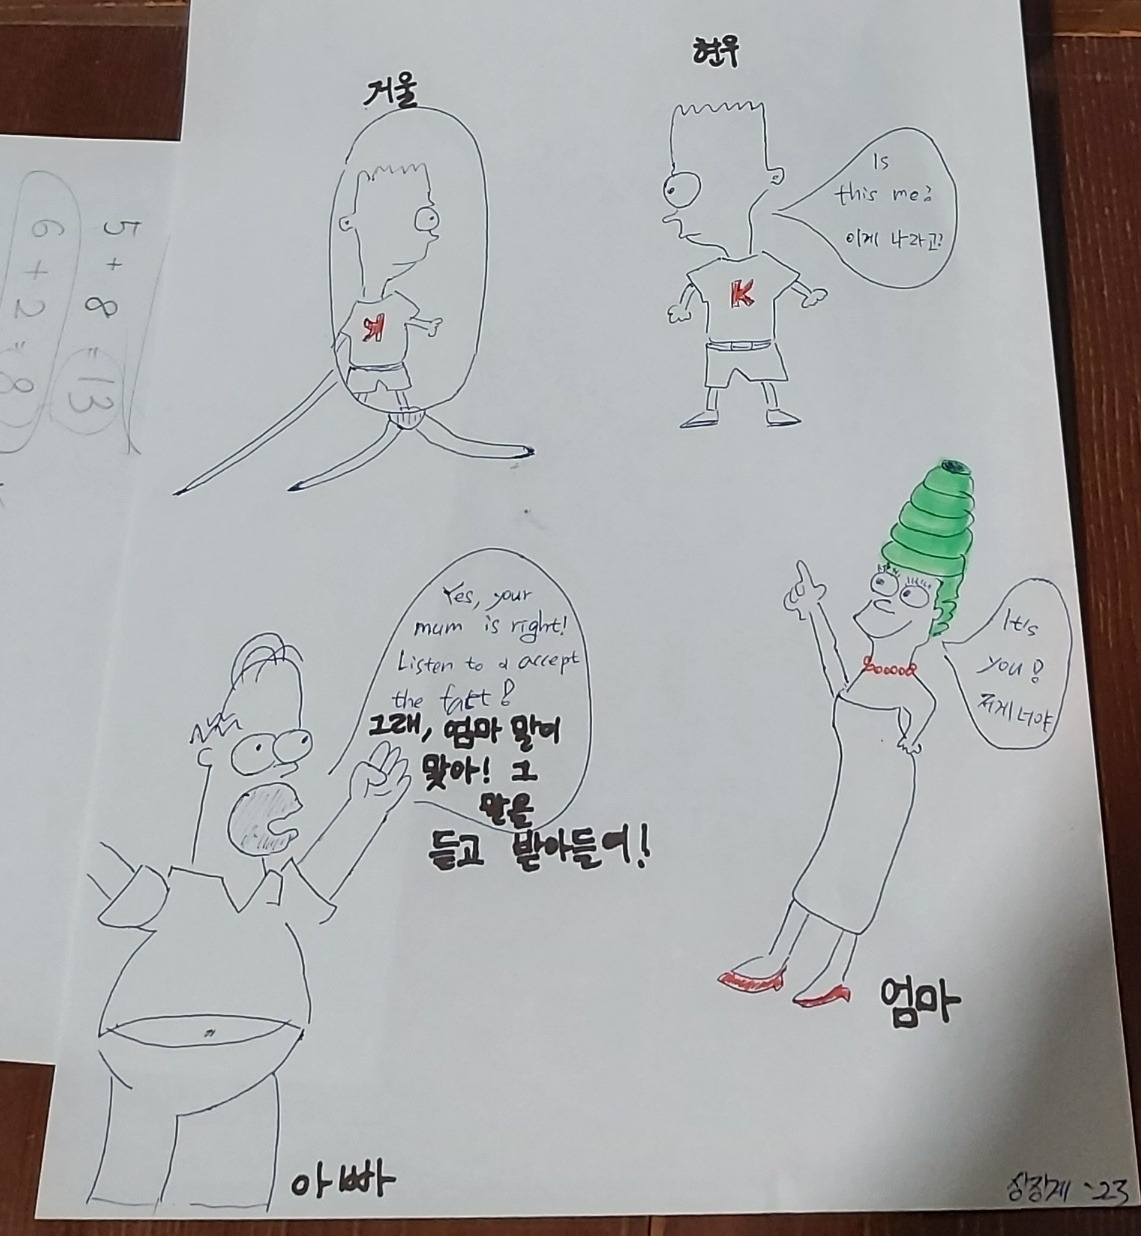 거울
현우
Is
this me?
이게 나라고?
K
K
5 + 8 = 13
6 + 2 = 8
It's
you!
저게 너야
Yes, your
mum is right!
Listen to & accept
the fact!
그래, 엄마 말이
맞아! 그
말을
듣고 받아들여!
엄마
아빠
'23